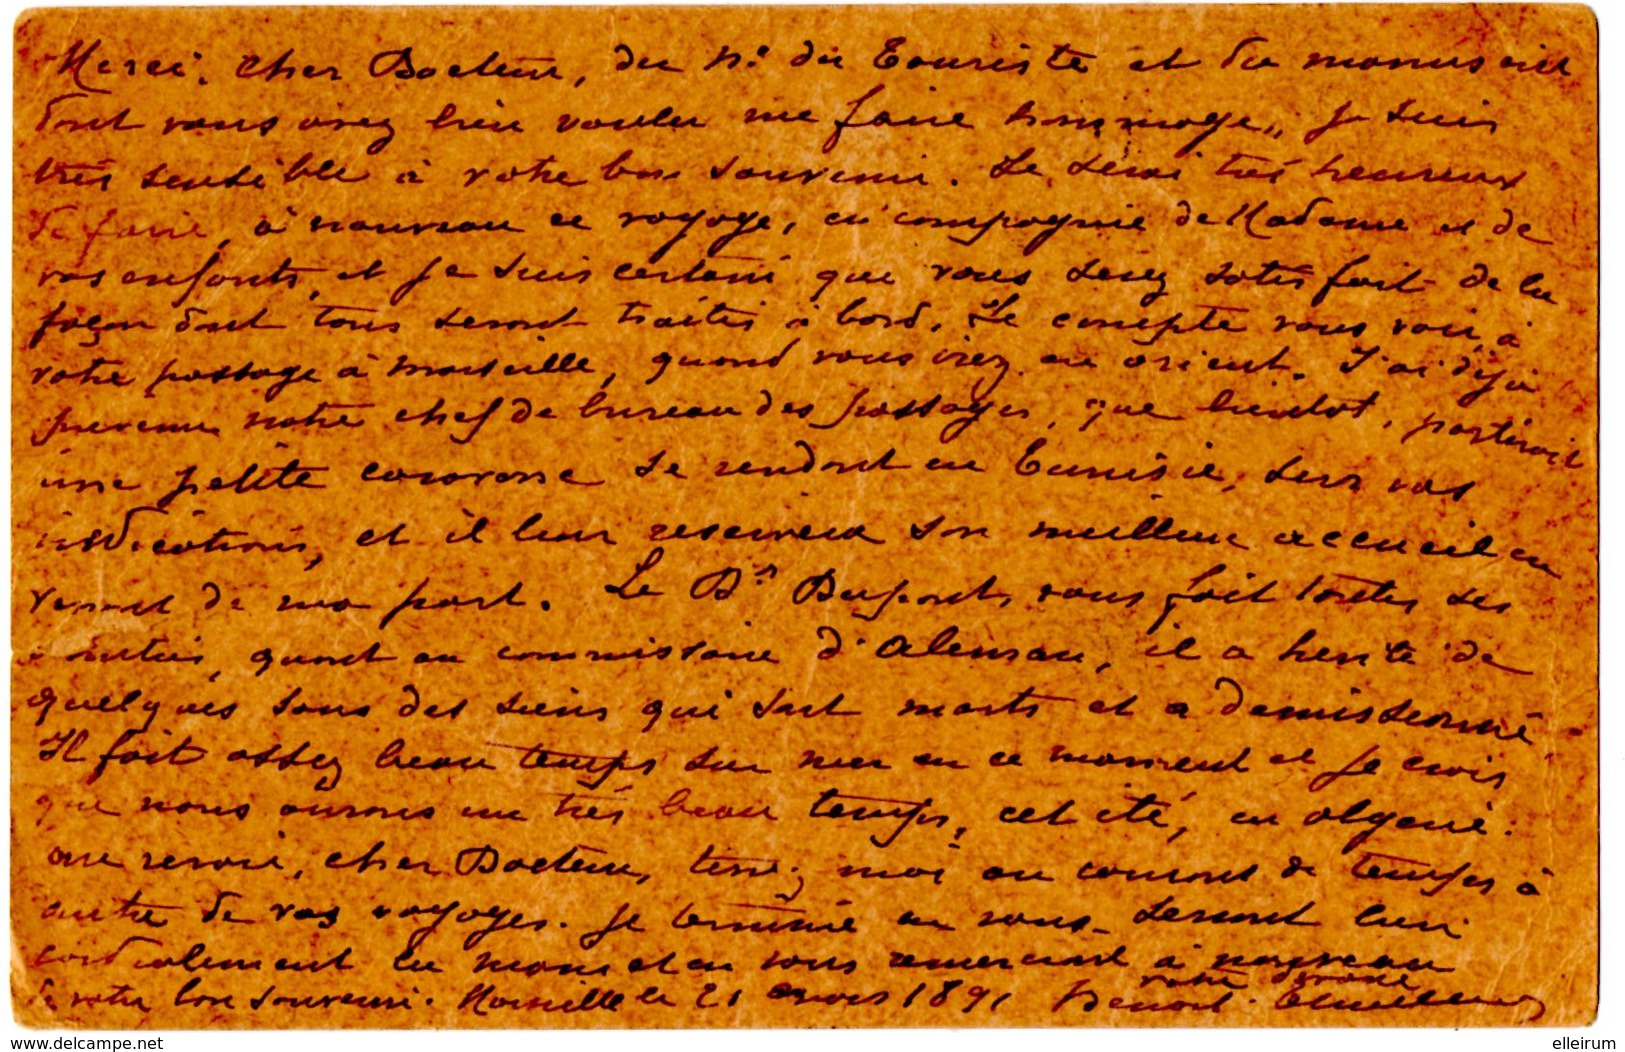 Merci, cher Docteur, du No du Touriste et du manuscrit
dont vous avez bien voulu me faire hommage, je suis
très sensible à votre bon souvenir. Je serai très heureux
de faire, à nouveau ce voyage, en compagnie de Madame et de
vos enfants, et je suis certain que vous serez satisfait de la
façon dont tous seront traités à bord. Je compte vous voir à
votre passage à Marseille, quand vous irez en orient. J'ai déjà
prévenu notre chef de bureau des passages, que bientôt, partirait
une petite caravane se rendant en Tunisie, sur vos
indications, et il leur reservera son meilleur accueil en
venant de ma part. Le Dr Dupont, vous fait toutes ses
amitiés, quant au commissaire d'
il a hérité de
quelques sous des siens qui sont morts et a demissionné.
Il fait assez beau temps sur mer en ce moment et je crois
que nous aurons un très beau temps, cet été, en algerie.
au revoir, cher Docteur, tenez moi au courant de temps à
autre de vos voyages. Je termine en vous serrant bien
cordialement la main et en vous remerciant à nouveau
de votre bon souvenir. Marseille le 21 mars 1891
votre dévoué
Benoit
delcampe.net
elleirum